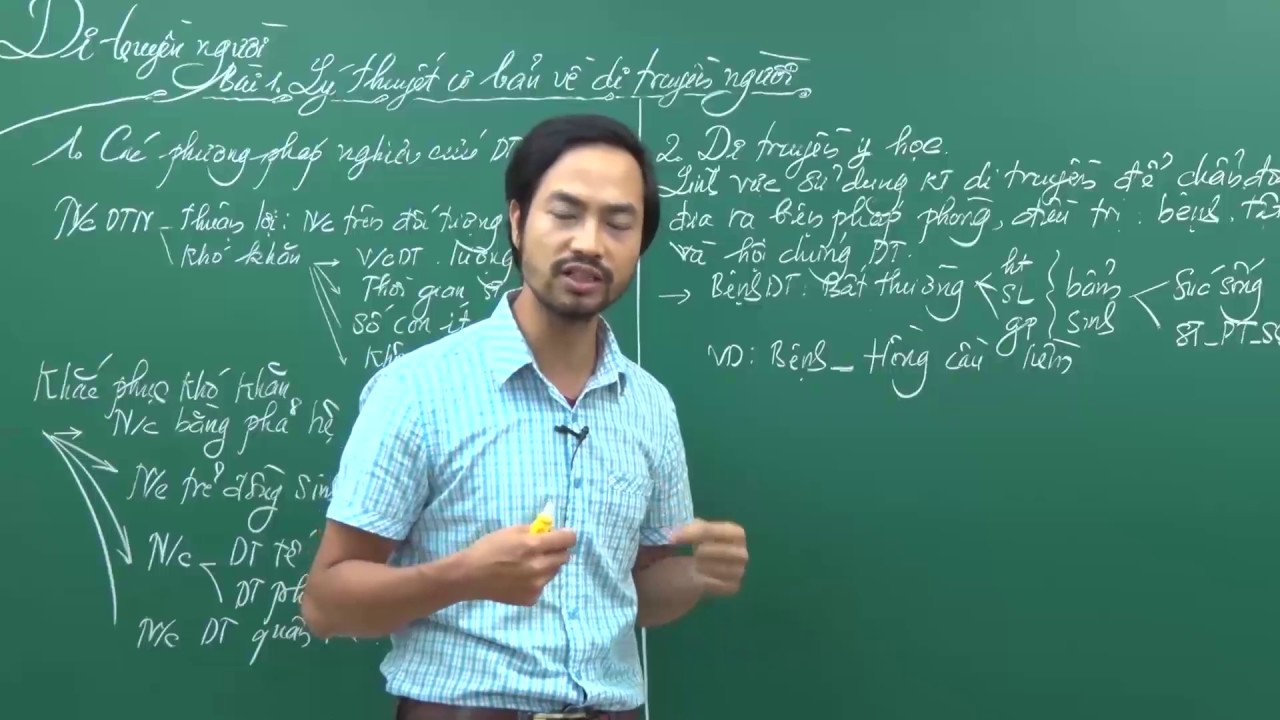 Di truyền người
Bài 1. Lý thuyết cơ bản về di truyền người
1. Các phương pháp nghiên cứu DT
N/c DTN - Thuận lợi: N/c trên đối tượng
Khó khăn → V/c DT. lượng
Thời gian
Số con ít
Khắc phục khó khăn
→ N/c bằng phả hệ
N/c trẻ đồng sinh
N/c - DT tế
DT ph
N/c DT quần
2. Di truyền y học.
Lĩnh vực sử dụng KT di truyền để chẩn đo
đưa ra biện pháp phòng, điều trị bệnh, tật
và hội chứng DT.
→ Bệnh DT: Bất thường
ht
SL
gp
bẩm
sinh
Sức sống
ST_PT_SS
VD: Bệnh_ Hồng cầu liềm